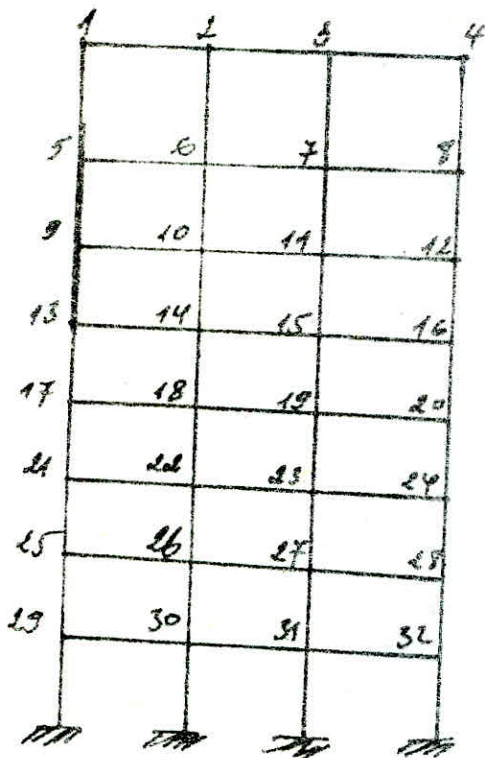 1 2 3 4
5 6 7 8
9 10 11 12
13 14 15 16
17 18 19 20
21 22 23 24
25 26 27 28
29 30 31 32